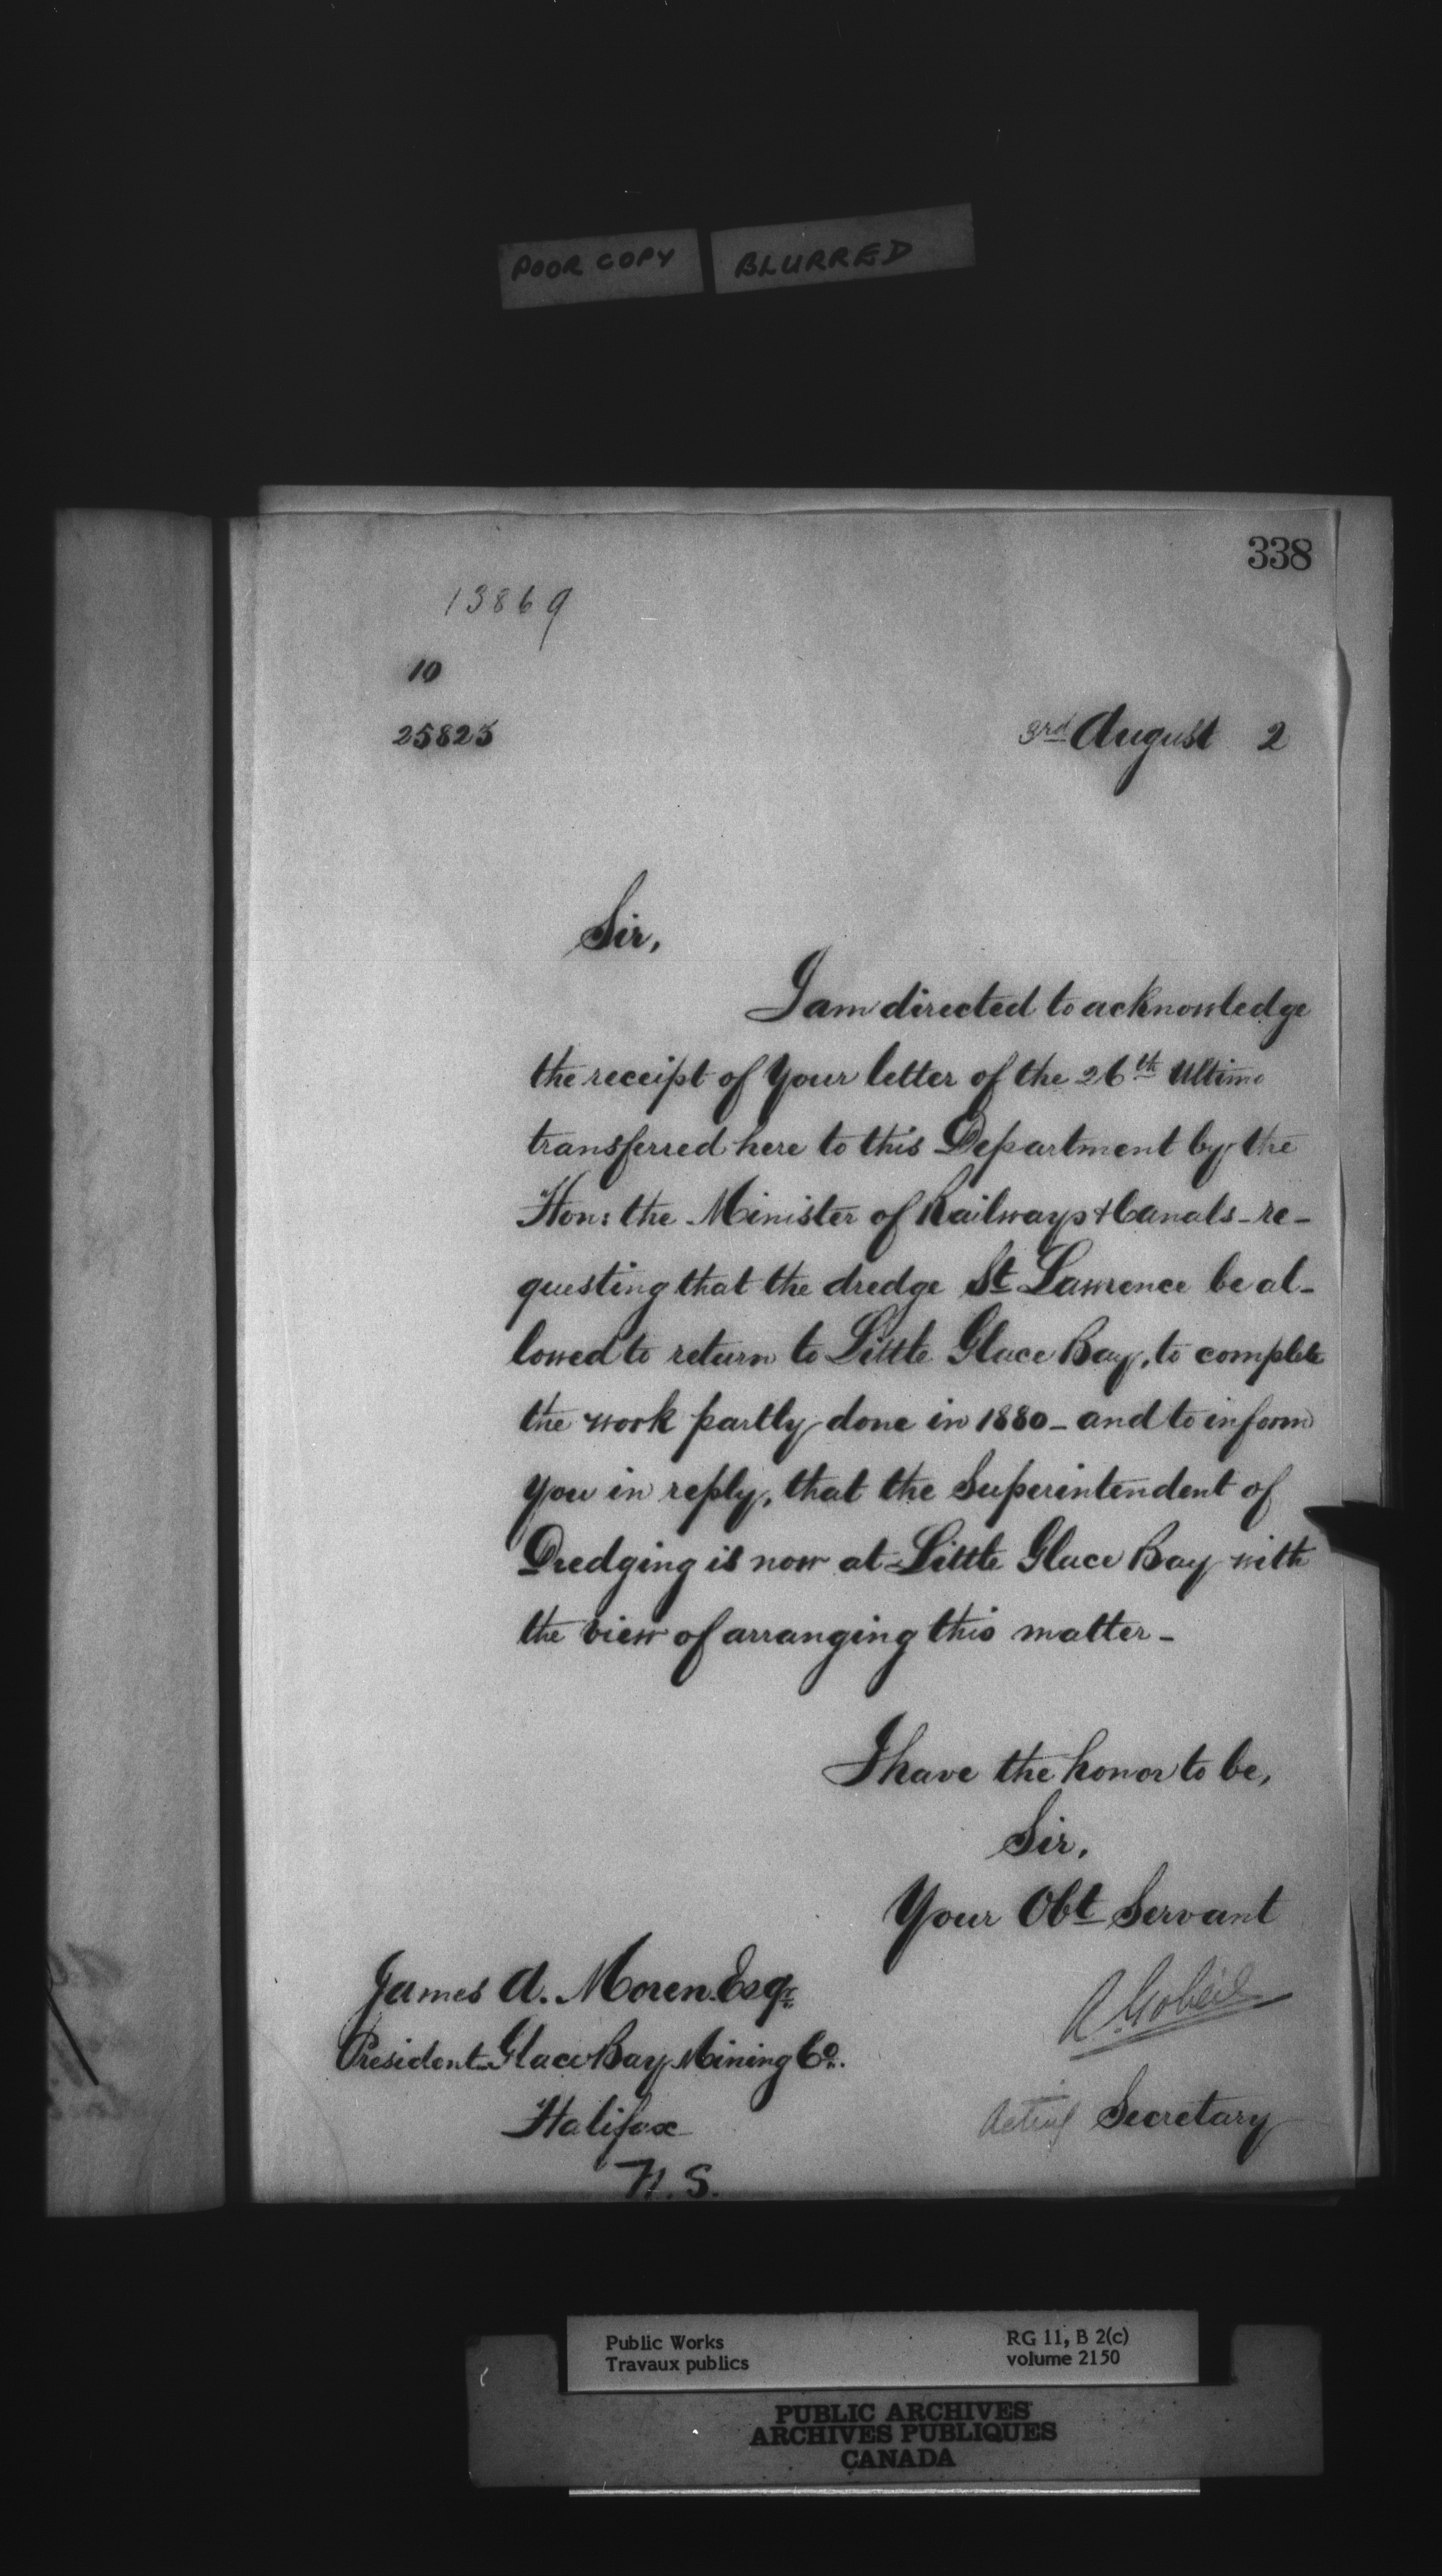 POOR COPY BLURRED
338
13869
10
25823
3rd August 2
Sir,
I am directed to acknowledge
the receipt of your letter of the 26th Ultimo
transferred here to this Department by the
Hon: the Minister of Railways & Canals - re-
questing that the dredge St Lawrence be al-
lowed to return to Little Glace Bay, to complete
the work partly done in 1880 - and to inform
you in reply, that the Superintendent of
Dredging is now at Little Glace Bay with
the view of arranging this matter -
I have the honor to be,
Sir,
Your Obt Servant
James A. Moren Esqr.
A. Gobeil
President Glace Bay Mining Co.
Halifax
Acting Secretary
N. S.
Public Works
Travaux publics
RG 11, B 2(c)
volume 2150
PUBLIC ARCHIVES
ARCHIVES PUBLIQUES
CANADA